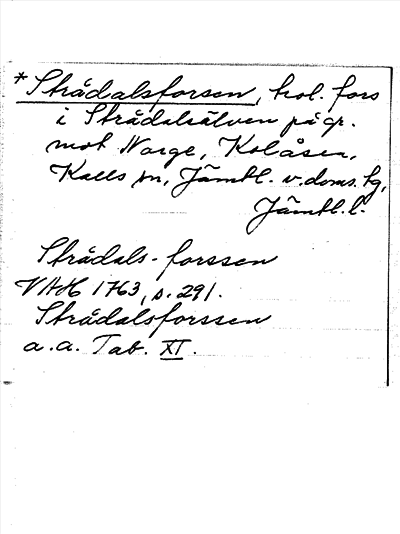 *Strådalsforsen, trol. fors
i Strådalsälven på gr.
mot Norge, Kolåsen,
Kalls sn, Jämtl. v. doms. tg,
Jämtl. l.
Strådals-forssen
VAH 1763, s. 291.
Strådalsforssen
a.a. Tab. XI.